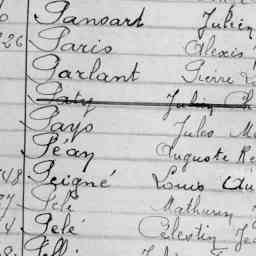 Pansart Julien
226 Paris Alexis
Parlant Pierre
Paty Julien Ch
Payo Jules M
Péan Auguste Re
48 Peigné Louis Au
Pelé Mathurin
Pelé Célestin Je